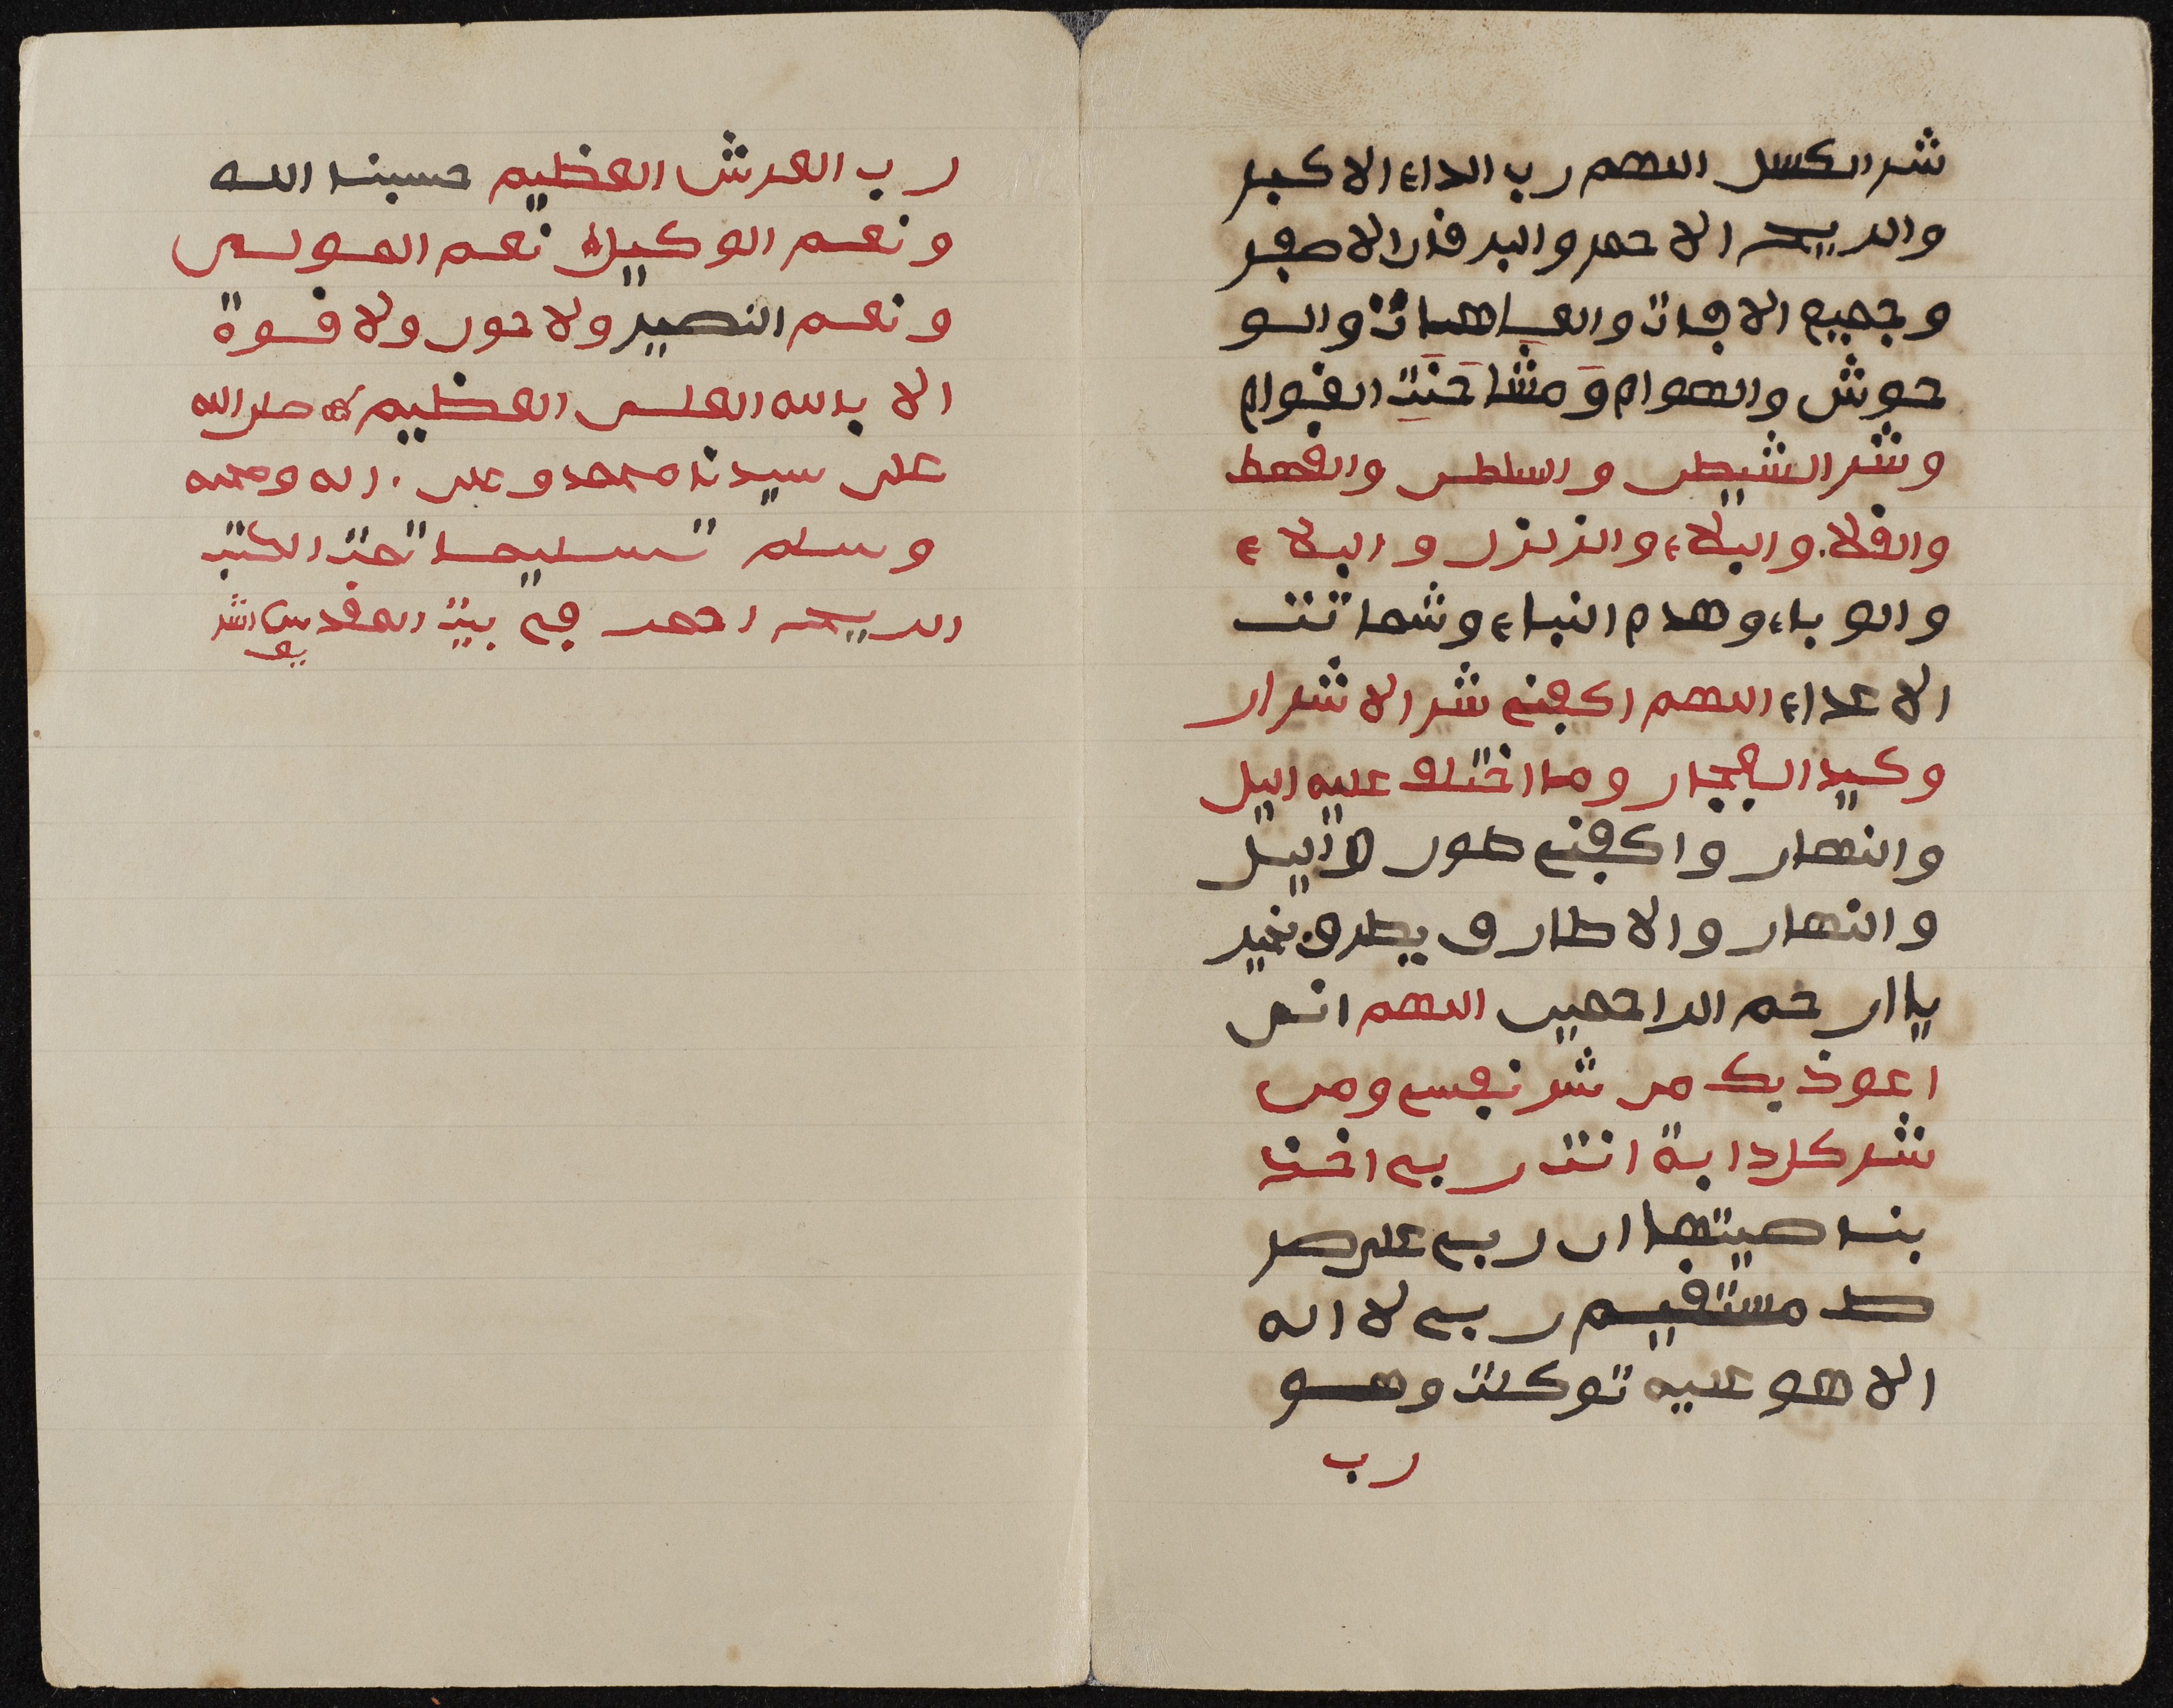 شر الكسل اللهم رب الداء الاكبر
والريح الاحمر والبرقان الاصفر
وجميع الافات والعاهات والو
حوش والهوام ومشاحنت القوام
وشر الشيطن والسلطن والقحط
والغلاء والبلاء والزلزل والبلاء
والوباء وهدم النباء وشماتت
الاعداء اللهم اكفني شر الاشرار
وكيد الفجار وما اختلف عليه اليل
والنهار واكفني طور اليل
والنهار والاطارق يطرق بخير
يا ارحم الراحمين اللهم انى
اعوذ بك من شر نفسي ومن
شر كل دابة انت ربي اخذ
بناصيتها ان ربي على صر
ط مستقيم ربي لا اله
الا هو عليه توكلت وهو
رب
رب العرش العظيم حسبنا الله
ونعم الوكيل نعم المولى
ونعم النصير ولا حول ولا قوة
الا بالله العلى العظيم صلى الله
على سيدنا محمد وعلى اله وصحبه
وسلم تسليما تمت الكتب
الريح احمر في بيت المقدس